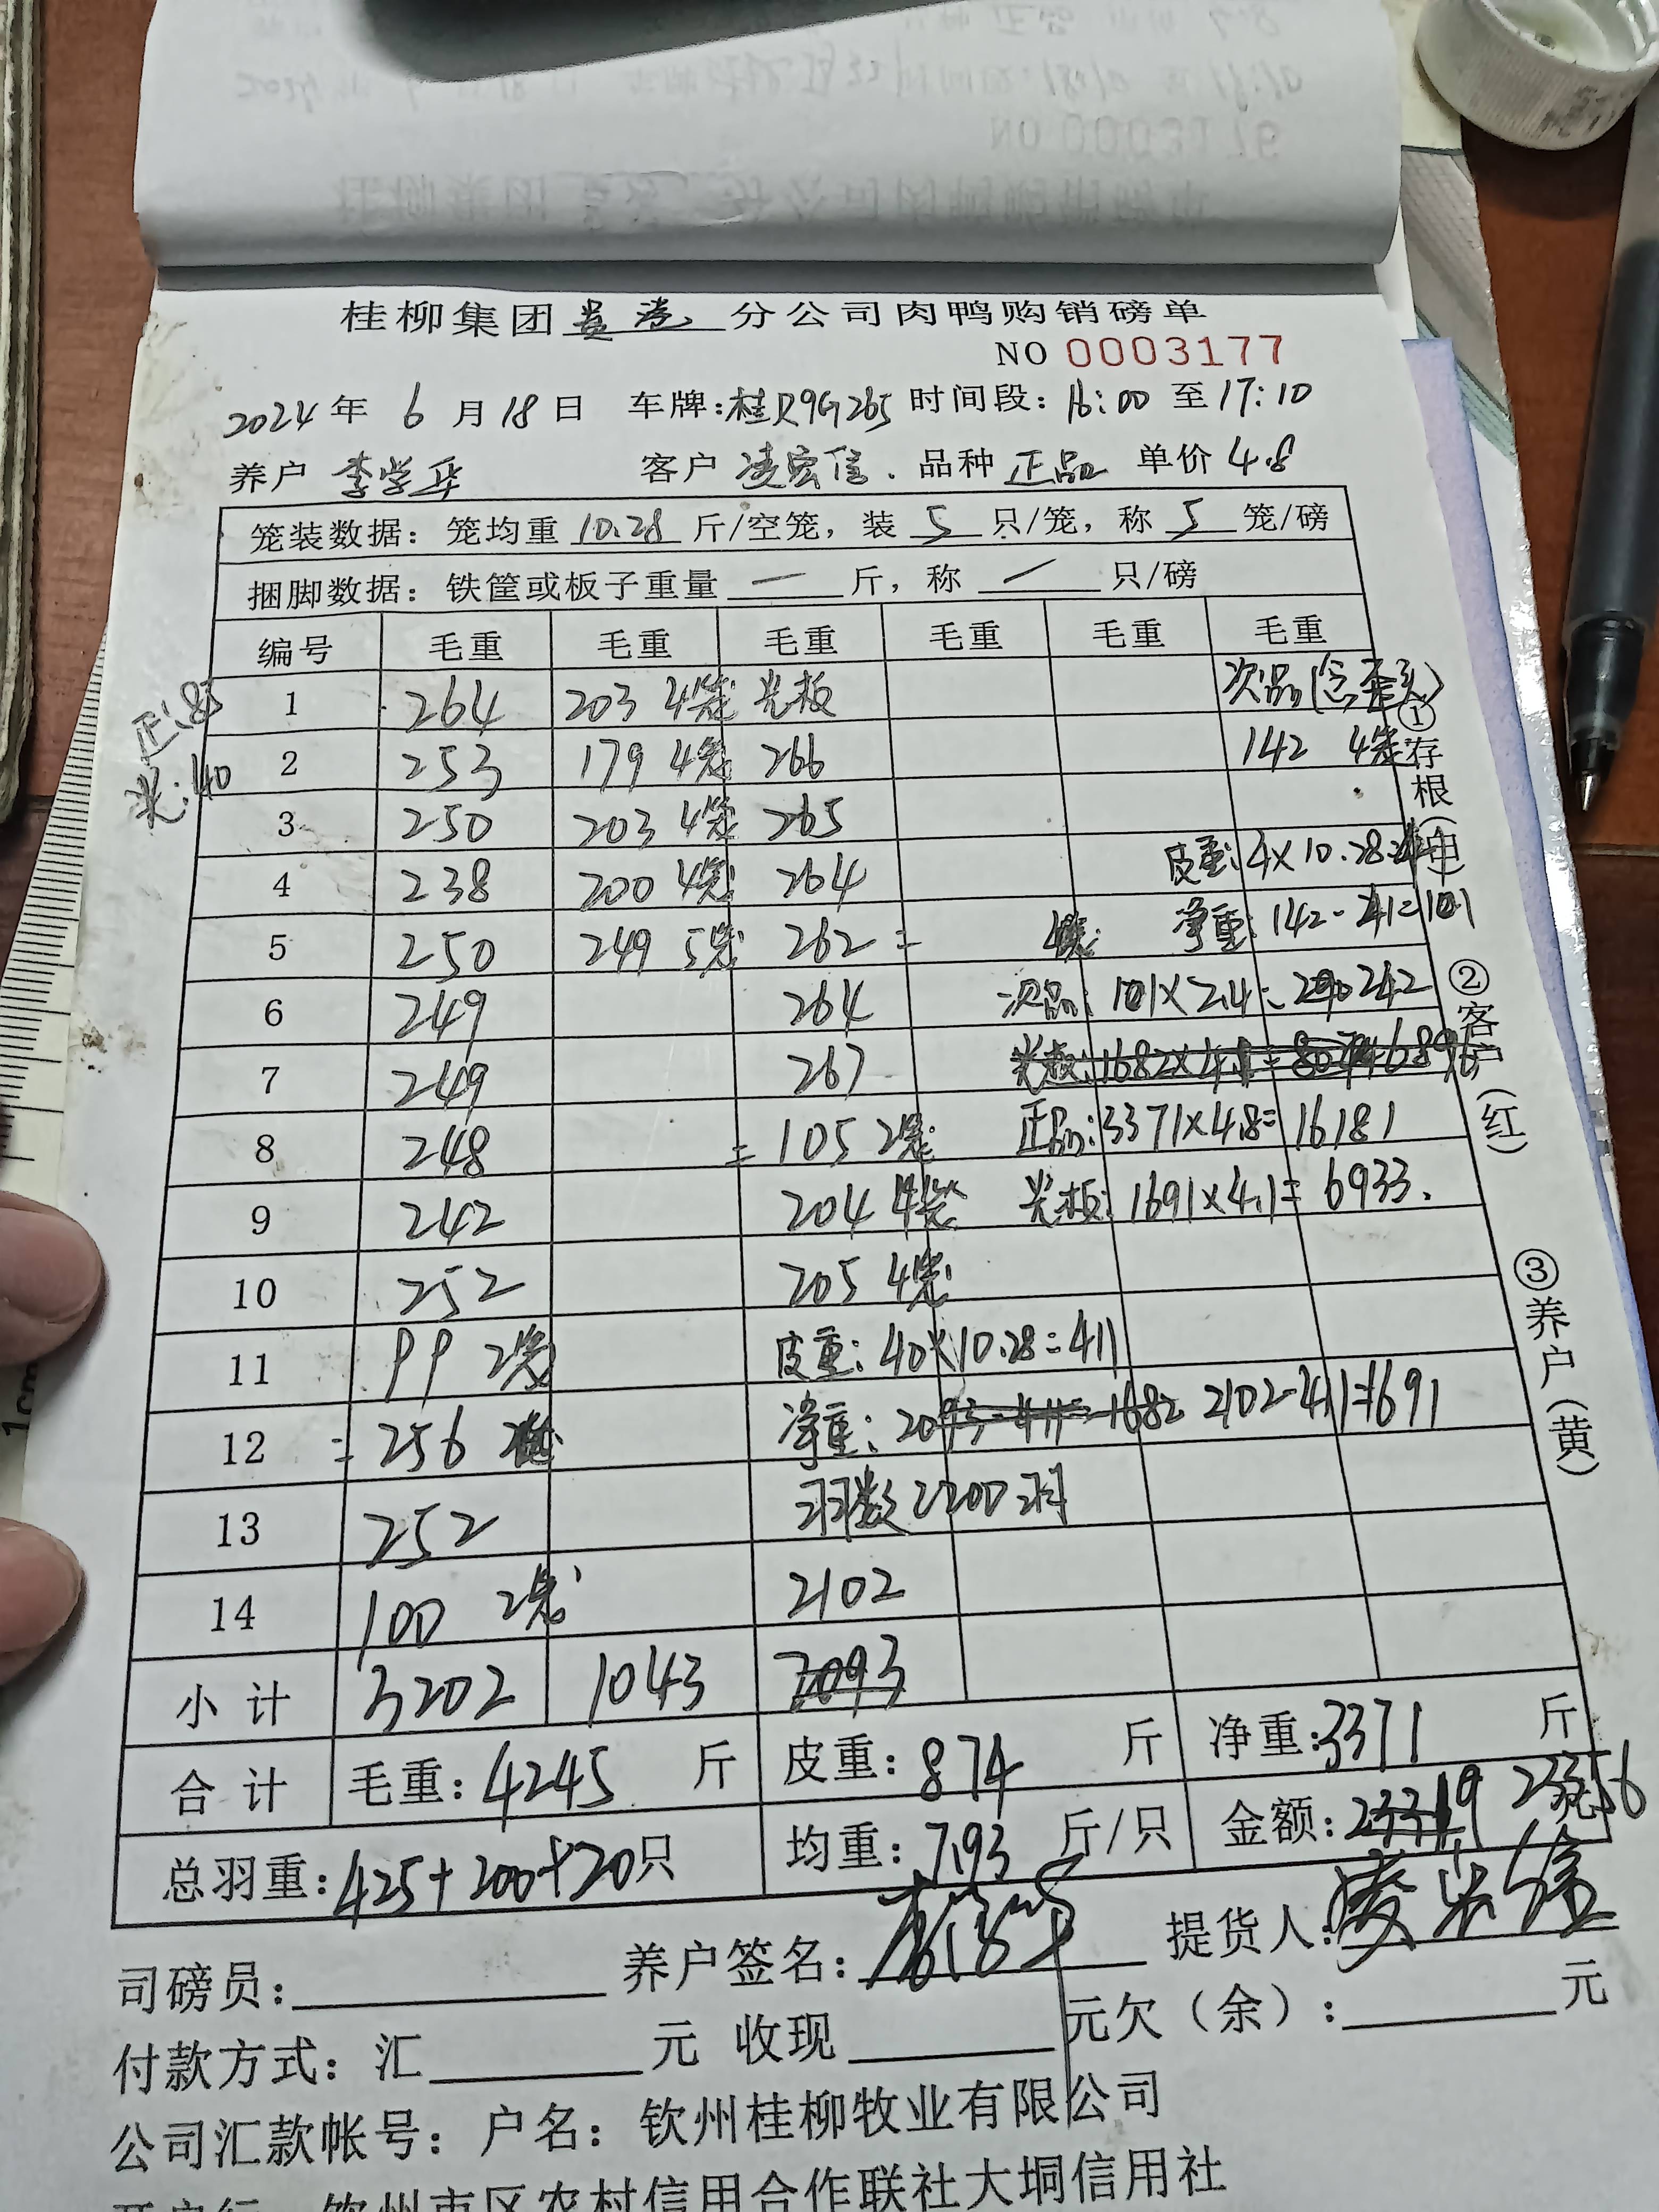 桂柳集团贵港分公司肉鸭购销磅单
NO 0003177
2024年 6 月18日 车牌:桂R9G265 时间段:16:00 至17:10
养户 李学华 客户 凌宏信. 品种 正品 单价 4.8
笼装数据: 笼均重 10.28 斤/空笼, 装 5 只/笼, 称 5 笼/磅
捆脚数据: 铁筐或板子重量 — 斤, 称 — 只/磅
编号 毛重 毛重 毛重 毛重 毛重 毛重
正:85
光:40
1 264 203 4笼 光板 次品(含歪头)
2 253 179 4笼 266 142 4笼
3 250 203 4笼 265
4 238 200 4笼 264 皮重:4×10.28=41
5 250 249 5笼 262 = 净重:142-41=101
6 249 264 次品:101×2.4=242
7 249 267 光板:1682×4.1=6896
8 248 = 105 2笼 正品:3371×4.8=16181
9 242 204 4笼 光板:1691×4.1=6933.
10 252 205 4笼
11 99 2笼 皮重:40×10.28=411
12 = 256 净重:2093-411=1682 2102-411=1691
13 252 羽数:200羽
14 100 2笼 2102
小计 3202 1043 2093
合计 毛重:4245 斤 皮重:874 斤 净重:3371 斤
总羽重:425+200+20只 均重:7.93 斤/只 金额:23319 23356
司磅员: 养户签名:李学华 提货人:凌宏信
付款方式: 汇 元 收现 元欠(余): 元
公司汇款帐号: 户名: 钦州桂柳牧业有限公司
开户行: 钦州市区农村信用合作联社大垌信用社
①存根(白)
②客户(红)
③养户(黄)
1cm